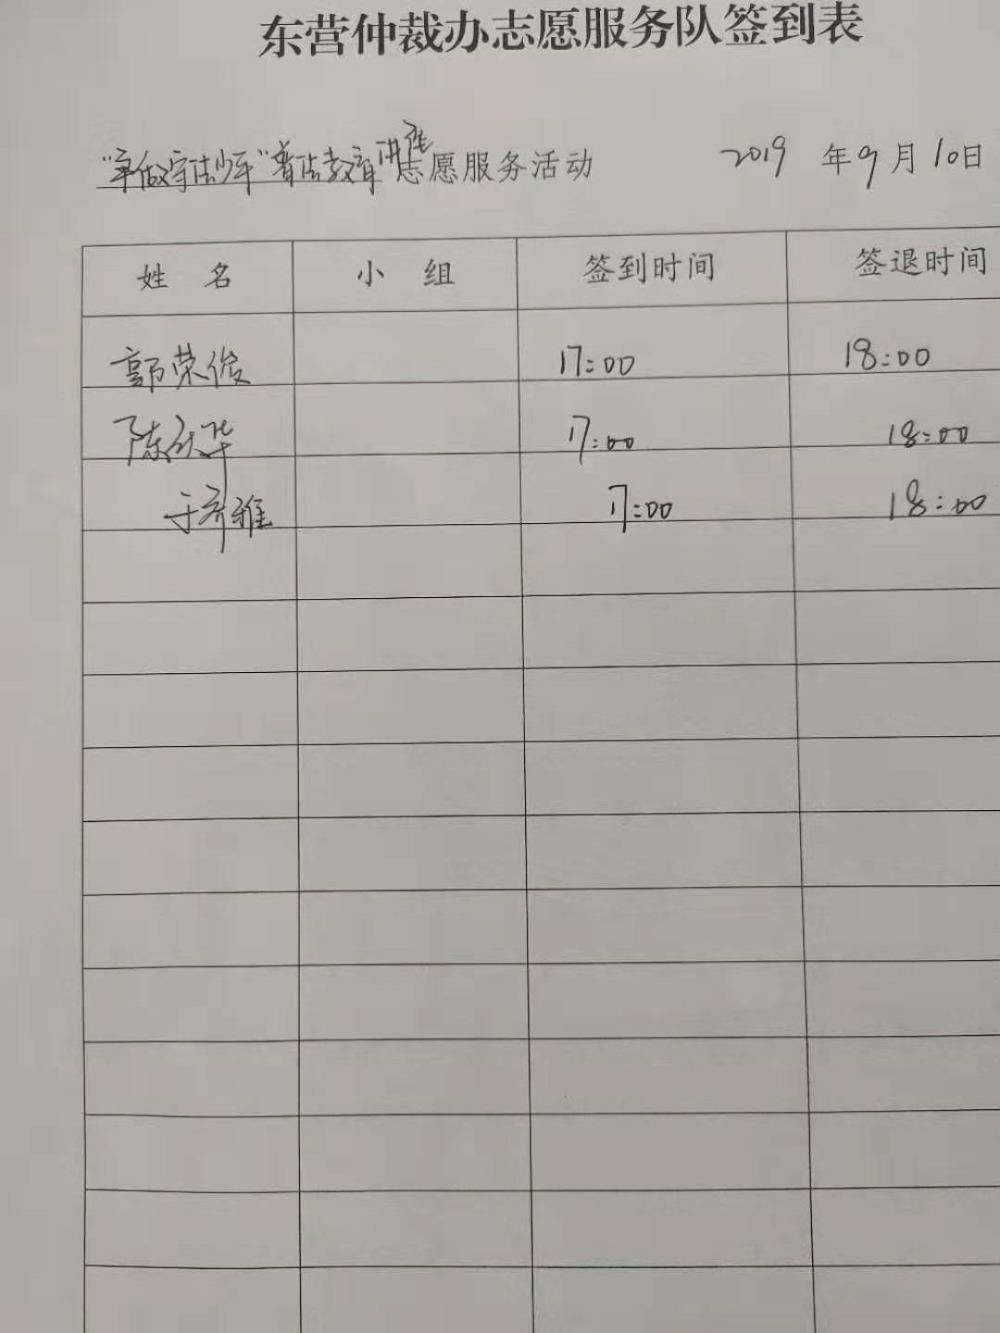 东营仲裁办志愿服务队签到表
“争做守法少年”普法教育讲座志愿服务活动 2019年9月10日
姓 名 小 组 签到时间 签退时间
郭荣俊 17:00 18:00
陈庆华 17:00 18:00
于齐雅 17:00 18:00